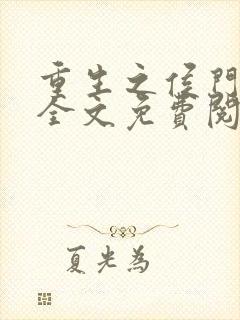 重生之侯門
全文免費閱
夏光為